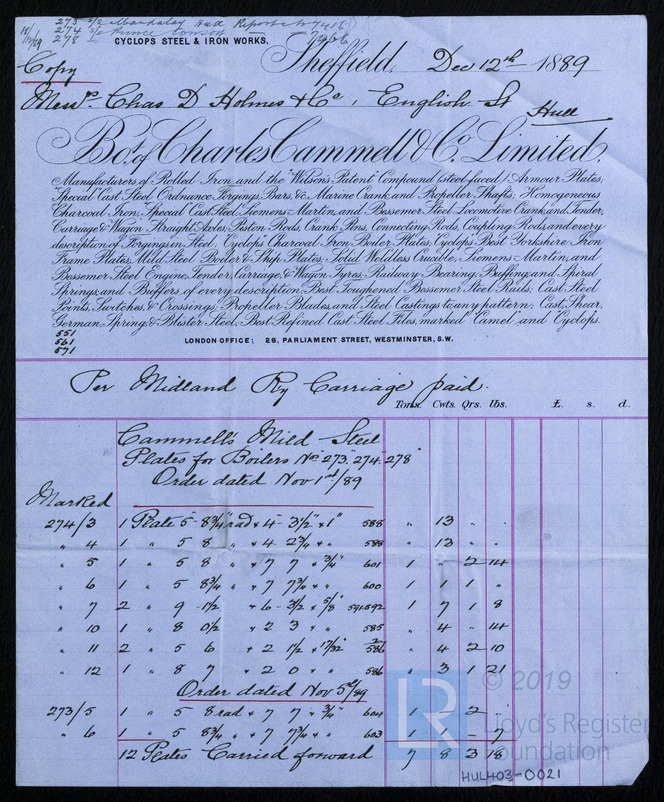 273 S/S Mandalay Hull Report No 7416
274 S/S
278
CYCLOPS STEEL & IRON WORKS,
Sheffield, Dec 12th 1889
Copy
Messrs. Chas D Holmes & Co, English St Hull
Bot. of Charles Cammell & Co. Limited.
Manufacturers of Rolled Iron, and the "Wilson's Patent" Compound (steel-faced) Armour Plates,
Special Cast Steel Ordnance, Forgings, Bars, &c. Marine Crank and Propeller Shafts; Homogeneous
Charcoal Iron, Special Cast Steel, Siemens-Martin, and Bessemer Steel Locomotive Crank, and Tender,
Carriage & Wagon Straight Axles, Piston Rods, Crank Pins, Connecting Rods, Coupling Rods, and every
description of Forgings in Steel, Cyclops Charcoal Iron Boiler Plates, Cyclops Best Yorkshire Iron
Frame Plates, Mild Steel Boiler & Ship Plates, Solid Weldless Crucible, Siemens-Martin, and
Bessemer Steel Engine, Tender, Carriage, & Wagon Tyres; Railway Bearing, Buffing and Spiral
Springs, and Buffers of every description, Best Toughened Bessemer Steel Rails, Cast Steel
Points, Switches, & Crossings, Propeller Blades, and Steel Castings to any pattern; Cast, Shear,
German, Spring, & Blister Steel, Best Refined Cast Steel Files, marked "Camel" and "Cyclops."
551
561
571
LONDON OFFICE; 26, PARLIAMENT STREET, WESTMINSTER, S.W.
Per Midland Ry Carriage paid.
Tons. Cwts. Qrs. lbs. £. s. d.
Cammell's Mild Steel
Plates for Boilers Nos 273, 274, 278
Order dated Nov 1st/89
Marked
274/3 1 Plate 5 8 3/4" rad x 4 3 1/2 x 1" 588 " 13 " "
" 4 1 " 5 8 " x 4 2 3/4 x " 588 " 13 " "
" 5 1 " 5 8 " x 7 7 x 3/4" 601 1 " 2 14
" 6 1 " 5 8 3/4 " x 7 7 3/4 x " 600 1 1 1 "
" 7 2 " 9 1 1/2 x 6 3 1/2 x 5/8" 591 592 1 7 1 8
" 10 1 " 8 0 1/2 x 2 3 x " 585 " 4 " 14
" 11 2 " 5 6 x 2 1 1/2 x 17/32" 2/586 " 4 2 10
" 12 1 " 8 7 x 2 0 x " 586 " 3 1 21
Order dated Nov 5th/89
273/5 1 " 5 8 rad x 7 7 x 3/4" 604 1 " 2 "
" 6 1 " 5 8 3/4 " x 7 7 3/4 x " 603 1 1 " 7
12 Plates Carried forward 7 8 3 18
© 2019
LR
Lloyd's Register
Foundation
HUL403-0021